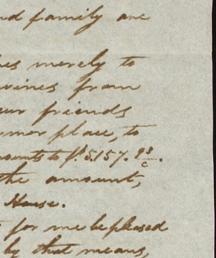 nd family are
es merely to
vines from
our friends
nor place, to
mounts to f. 5157.98/c.
the amount,
House.
for me be pleased
by that means,